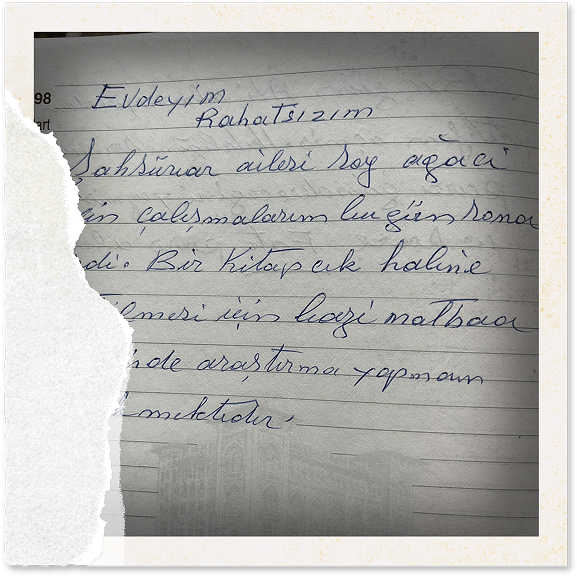 98
art
Evdeyim
Rahatsızım
Şahsüvar ailesi soy ağacı
çin çalışmalarım bu gün sona
di. Bir Kitapcık haline
ilmesi için bazı matbaa
inde araştırma yapmam
mektedir.